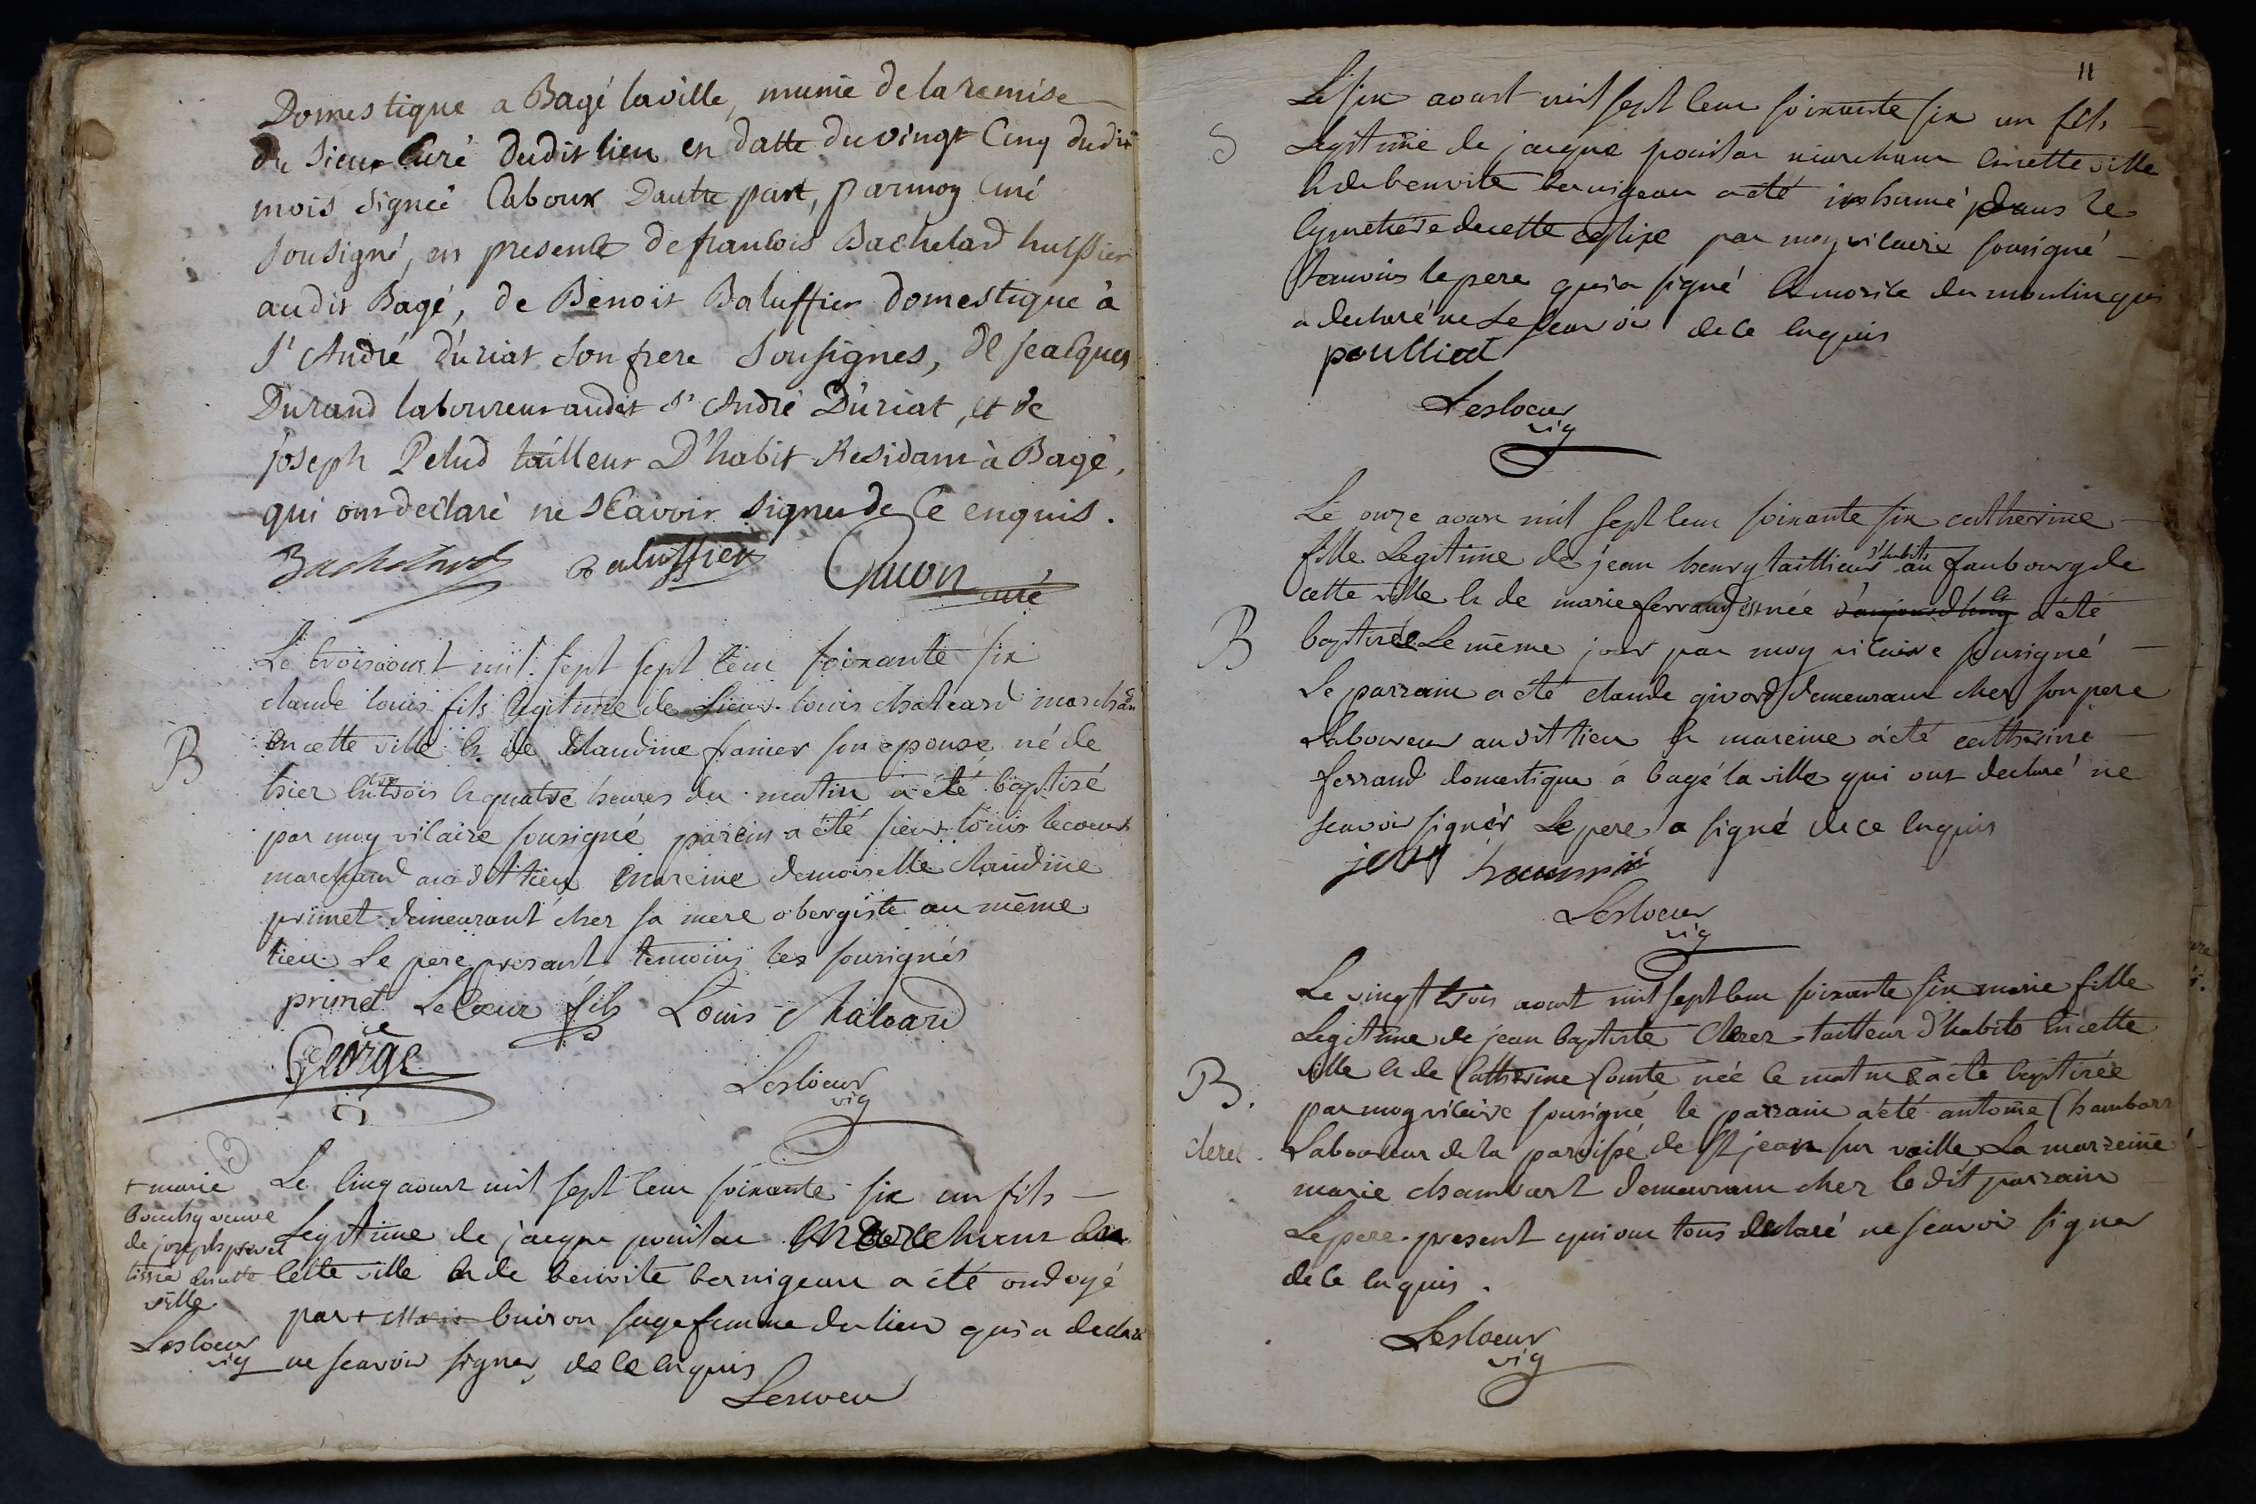 Domestique a Bagé laville, munie de la remise
du sieur Curé dudit lieu en datte du vingt Cinq dudit
mois signeé Caboux Dautte part, par moy Curé
Sousigné, en presence de francois Bachelard huissier
audit Bagé, de Benoit Baluffier domestique à
St André D'uriat son frere Sousignes, de jeacques
Durand laboureur audit St André D'uriat, et de
joseph Pelud tailleur D'habit Residant à Bagé,
qui ont declaré ne sCavoir signer de Ce enquis.
Bachelard Baluffier curé
B
Le trois aoust mil sept sept cent soixante six
claude louis fils legitime de sieur louis chaleard marchand
en cette ville et de Claudine franier son epouse né de
hier entre trois et quatre heures du matin a été baptisé
par moy vicaire sousigné parein a été sieur louis lecoeur
marchand au dit lieu mareine demoiselle Claudine
primet demeurant chez sa mere obergiste au même
lieu Le pere present temoins les sousignés
primet LeCoeur fils Louis Chaleard
George
Lescoeur
vic
+ marie
veuve
de joseph
en cette
ville
Lescoeur
vic
Le cinq aoust mil sept cent soixante six un fils
Legitime de jacque marchant en
Cette ville et de benoite bernigeau a été ondoyé
par + Marie buiron sage femme du lieu qui a declaré
ne scavoir signer, de ce enquis
Lescoeur
11
S
Le six aoust mil sept cent soixante six un fils
Legitime de jacque marchant en cette ville
et de benoite bernigeau a été inhumé dans le
Cymetiere de cette eglise par moy vicaire sousigné
temoins le pere qui a signé et du moulin qui
a declaré ne Le scavoir de ce enquis
poulliat
Lescoeur
vic
B
Le onze aoust mil sept cent soixante six catherine
fille Legitime de jean henry taillieur d'habits au faubourg de
cette ville et de marie ferrand née d'aujourd'huy et a été
baptisée Le même jour par moy vicaire sousigné
Le parrain a été claude givord demeurant chez son pere
Laboureur au dit lieu et mareine a été catherine
ferrand domestique à bagé la ville qui ont declaré ne
scavoir signer Le pere a signé de ce enquis
Lescoeur
vic
B.
cleret.
Le vingt trois aoust mil sept cent soixante six marie fille
Legitime de jean baptiste Cleret tailleur d'habits en cette
ville et de Catherine Comte née ce matin et a été baptisée
par moy vicaire sousigné le parrain a été antoine Chambard
Laboureur de la paroisse de St jean sur vaille La marreine
marie chambart demeurant chez le dit parrain
Le pere present qui ont tous declaré ne scavoir signer
de ce enquis.
Lescoeur
vic